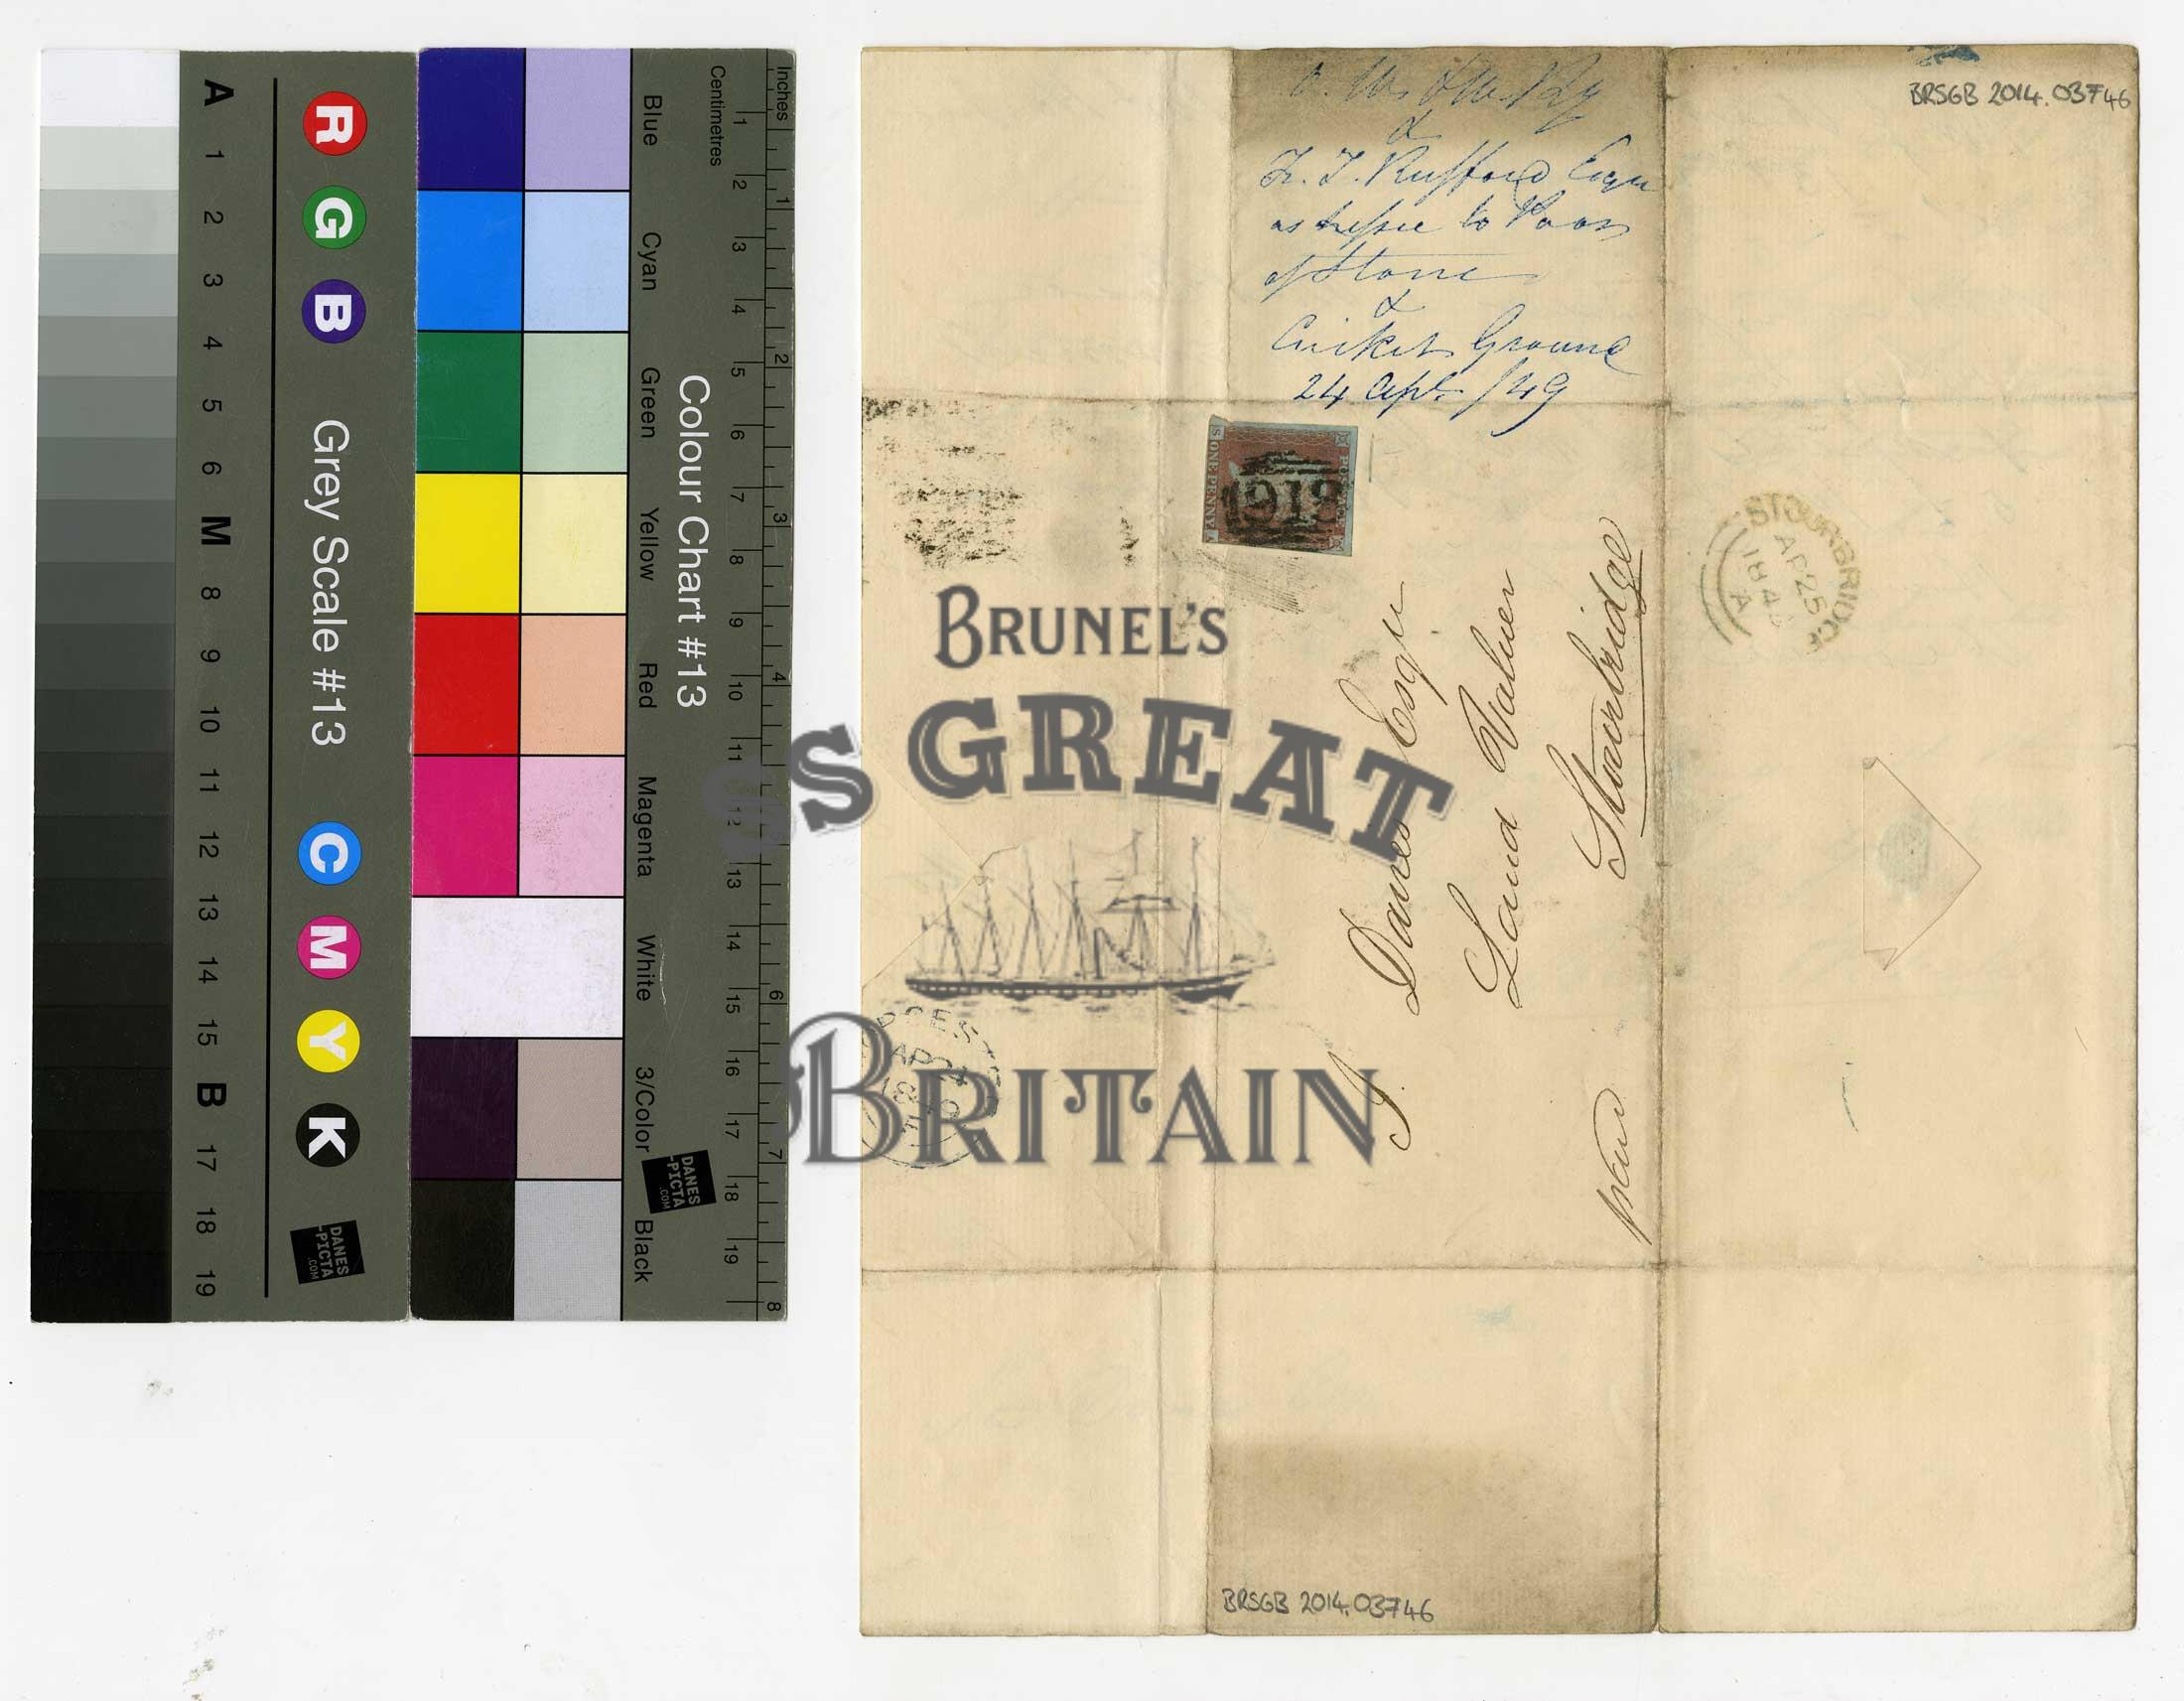 A 1 2 3 4 5 6 M 8 9 10 11 12 13 14 15 B 17 18 19
R G B
Grey Scale #13
C M Y K
DANES
-PICTA
.COM
Blue Cyan Green Yellow Red Magenta White 3/Color Black
Colour Chart #13
DANES
-PICTA
.COM
Centimetres 1 2 3 4 5 6 7 8 9 10 11 12 13 14 15 16 17 18 19
Inches 1 2 3 4 6 7 8
O. W. & W. Ry
&
F. T. Rufford Esqr
of Stone
&
Cricket Ground
24 Apl. /49
BRSGB 2014.03746
S
ONE PENNY
1913
STOURBRIDGE
AP 25
184
A
I. Davies Esqr
Land Valuer
Stourbridge
AP 24
BRUNEL'S
SS GREAT
BRITAIN
BRSGB 2014.03746